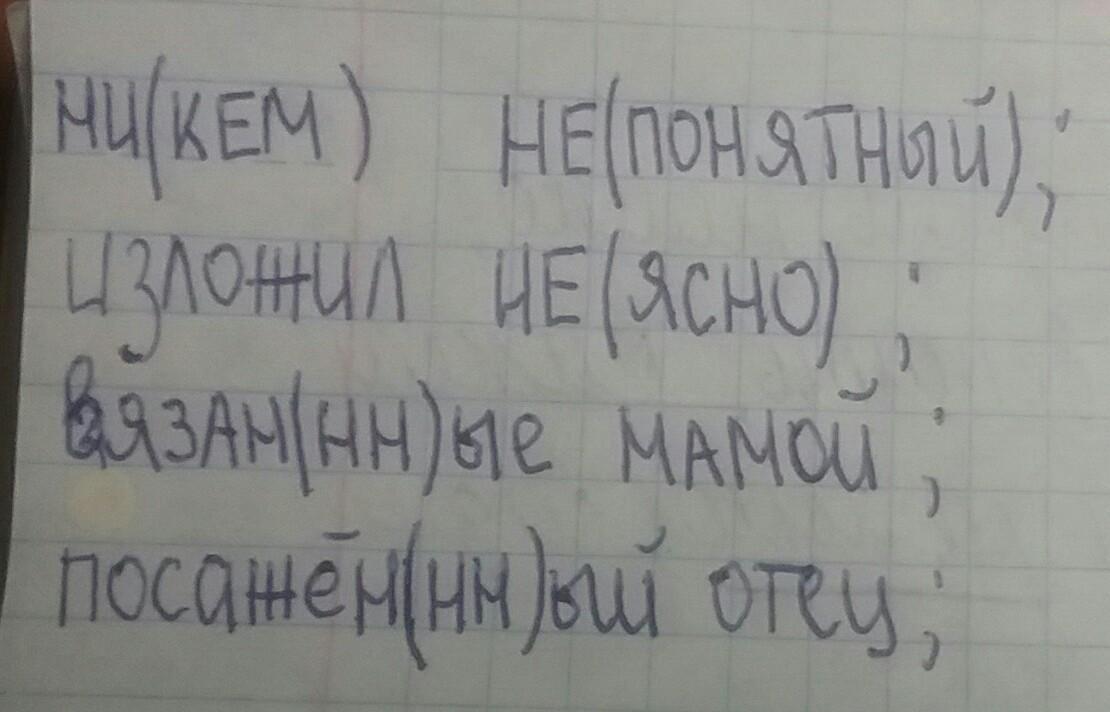 НИ(КЕМ) НЕ(ПОНЯТНЫЙ);
ИЗЛОЖИЛ НЕ(ЯСНО);
ВЯЗАН(НН)ые МАМОЙ;
посажён(нн)ый отец;